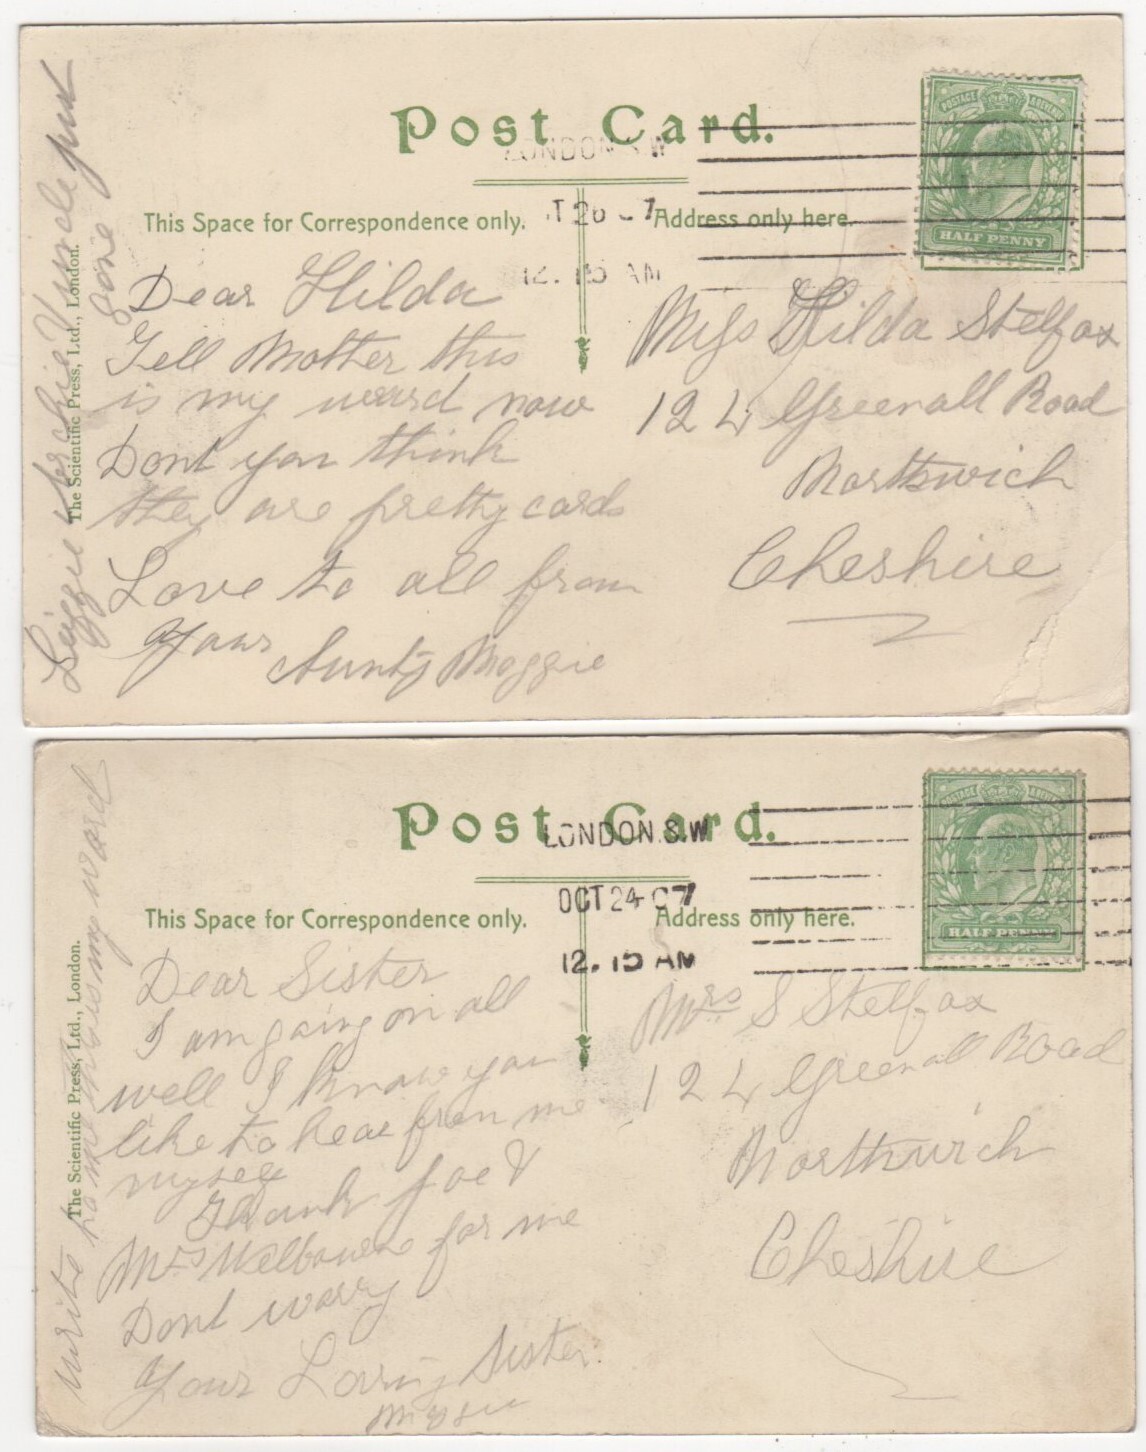 Post Card.
LONDON S.W
This Space for Correspondence only.
T 26 7
Address only here.
12. 15 AM
POSTAGE REVENUE
HALF PENNY
Dear Hilda
Tell Mother this
is my ward now
Dont you think
they are pretty cards
Love to all from
Yours Aunty Maggie
Lizzie Archie Uncle just
gone
The Scientific Press, Ltd., London.
Miss Hilda Stelfox
124 Greenall Road
Northwich
Cheshire
Post Card.
LONDON. S.W
This Space for Correspondence only.
OCT 24 07
Address only here.
12. 15 AM
POSTAGE REVENUE
HALF PENNY
Dear Sister
I am going on all
well I know you
like to hear from me
myself
Thank Joe &
Mrs Melbourne for me
Dont worry
Your Loving Sister.
Maggie
write to me this is my ward
The Scientific Press, Ltd., London.
Mrs S Stelfox
124 Greenall Road
Northwich
Cheshire